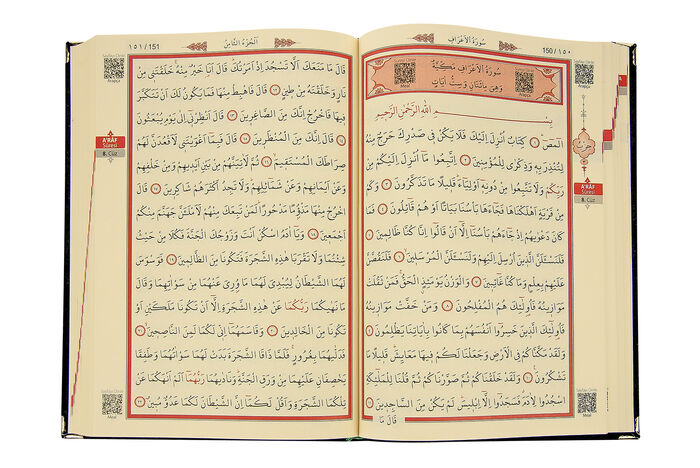 سُورَةُ الْاَعْرَافِ
150 / ١٥٠
سُورَةُ الْاَعْرَافِ مَكِّيَّةٌ
وَهِيَ مِائَتَانِ وَسِتُّ اٰيَاتٍ
Meal
Arapça
بِسْمِ اللّٰهِ الرَّحْمٰنِ الرَّحِيمِ
الٓمٓصٓ ۝١ كِتَابٌ اُنْزِلَ اِلَيْكَ فَلَا يَكُنْ فِي صَدْرِكَ حَرَجٌ مِنْهُ
لِتُنْذِرَ بِهِ وَذِكْرٰى لِلْمُؤْمِنِينَ ۝٢ اِتَّبِعُوا مَٓا اُنْزِلَ اِلَيْكُمْ مِنْ
رَبِّكُمْ وَلَا تَتَّبِعُوا مِنْ دُونِهِٓ اَوْلِيَٓاءَ قَلِيلًا مَا تَذَكَّرُونَ ۝٣ وَكَمْ
مِنْ قَرْيَةٍ اَهْلَكْنَاهَا فَجَٓاءَهَا بَأْسُنَا بَيَاتًا اَوْ هُمْ قَٓائِلُونَ ۝٤ فَمَا
كَانَ دَعْوٰيهُمْ اِذْ جَٓاءَهُمْ بَأْسُنَٓا اِلَّٓا اَنْ قَالُٓوا اِنَّا كُنَّا ظَالِمِينَ ۝٥
فَلَنَسْـَٔلَنَّ الَّذِينَ اُرْسِلَ اِلَيْهِمْ وَلَنَسْـَٔلَنَّ الْمُرْسَلِينَ ۝٦ فَلَنَقُصَّنَّ
عَلَيْهِمْ بِعِلْمٍ وَمَا كُنَّا غَٓائِبِينَ ۝٧ وَالْوَزْنُ يَوْمَئِذٍ الْحَقُّ فَمَنْ ثَقُلَتْ
مَوَازِينُهُ فَاُو۬لٰٓئِكَ هُمُ الْمُفْلِحُونَ ۝٨ وَمَنْ خَفَّتْ مَوَازِينُهُ
فَاُو۬لٰٓئِكَ الَّذِينَ خَسِرُٓوا اَنْفُسَهُمْ بِمَا كَانُوا بِاٰيَاتِنَا يَظْلِمُونَ ۝٩
وَلَقَدْ مَكَّنَّاكُمْ فِي الْاَرْضِ وَجَعَلْنَا لَكُمْ فِيهَا مَعَايِشَ قَلِيلًا مَا
تَشْكُرُونَ ۝١٠ وَلَقَدْ خَلَقْنَاكُمْ ثُمَّ صَوَّرْنَاكُمْ ثُمَّ قُلْنَا لِلْمَلٰٓئِكَةِ
اسْجُدُوا لِاٰدَمَ فَسَجَدُٓوا اِلَّٓا اِبْلِيسَ لَمْ يَكُنْ مِنَ السَّاجِدِينَ ۝١١
قَالَ مَا
حزب
A'RÂF
Sûresi
8. Cüz
Arapça
Meal
اَلْجُزْءُ الثَّامِنُ
١٥١ / 151
قَالَ مَا مَنَعَكَ اَلَّا تَسْجُدَ اِذْ اَمَرْتُكَ قَالَ اَنَا۬ خَيْرٌ مِنْهُ خَلَقْتَنِي مِنْ
نَارٍ وَخَلَقْتَهُ مِنْ طِينٍ ۝١٢ قَالَ فَاهْبِطْ مِنْهَا فَمَا يَكُونُ لَكَ اَنْ تَتَكَبَّرَ
فِيهَا فَاخْرُجْ اِنَّكَ مِنَ الصَّاغِرِينَ ۝١٣ قَالَ اَنْظِرْنِٓي اِلٰى يَوْمِ يُبْعَثُونَ
۝١٤ قَالَ اِنَّكَ مِنَ الْمُنْظَرِينَ ۝١٥ قَالَ فَبِمَٓا اَغْوَيْتَنِي لَاَقْعُدَنَّ لَهُمْ
صِرَاطَكَ الْمُسْتَقِيمَ ۝١٦ ثُمَّ لَاٰتِيَنَّهُمْ مِنْ بَيْنِ اَيْدِيهِمْ وَمِنْ خَلْفِهِمْ
وَعَنْ اَيْمَانِهِمْ وَعَنْ شَمَٓائِلِهِمْ وَلَا تَجِدُ اَكْثَرَهُمْ شَاكِرِينَ ۝١٧ قَالَ
اخْرُجْ مِنْهَا مَذْؤُ۫مًا مَدْحُورًا لَمَنْ تَبِعَكَ مِنْهُمْ لَاَمْلَـَٔنَّ جَهَنَّمَ مِنْكُمْ
اَجْمَعِينَ ۝١٨ وَيَٓا اٰدَمُ اسْكُنْ اَنْتَ وَزَوْجُكَ الْجَنَّةَ فَكُلَا مِنْ حَيْثُ
شِئْتُمَا وَلَا تَقْرَبَا هٰذِهِ الشَّجَرَةَ فَتَكُونَا مِنَ الظَّالِمِينَ ۝١٩ فَوَسْوَسَ
لَهُمَا الشَّيْطَانُ لِيُبْدِيَ لَهُمَا مَا وُ۫رِيَ عَنْهُمَا مِنْ سَوْاٰتِهِمَا وَقَالَ
مَا نَهٰيكُمَا رَبُّكُمَا عَنْ هٰذِهِ الشَّجَرَةِ اِلَّٓا اَنْ تَكُونَا مَلَكَيْنِ اَوْ
تَكُونَا مِنَ الْخَالِدِينَ ۝٢٠ وَقَاسَمَهُمَٓا اِنِّي لَكُمَا لَمِنَ النَّاصِحِينَ ۝٢١
فَدَلّٰيهُمَا بِغُرُورٍ فَلَمَّا ذَاقَا الشَّجَرَةَ بَدَتْ لَهُمَا سَوْاٰتُهُمَا وَطَفِقَا
يَخْصِفَانِ عَلَيْهِمَا مِنْ وَرَقِ الْجَنَّةِ وَنَادٰيهُمَا رَبُّهُمَٓا اَلَمْ اَنْهَكُمَا عَنْ
تِلْكُمَا الشَّجَرَةِ وَاَقُلْ لَكُمَٓا اِنَّ الشَّيْطَانَ لَكُمَا عَدُوٌّ مُبِينٌ ۝٢٢
Arapça
A'RÂF
Sûresi
8. Cüz
Meal